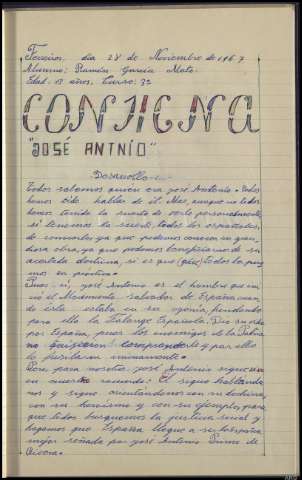 Terreiros, día 28 de Noviembre de 1967
Alumno: Ramón García Mato.
Edad 13 años. Curso: 3º
CONSIGNA
"JOSÉ ANTNÍO"
Desarrollo.-
Todos sabemos quién era José Antonio. Todos
hemos oído hablar de él. Mas, aunque no todos
hemos tenido la suerte de verle personalmente,
si tenemos la suerte todos los españoles,
de conocerlo ya que podemos conocer su gran-
diosa obra, ya que podemos beneficiarnos de su
acertada doctrina, si es que (que) todos la pone-
mos en práctica.
Pues, si, José Antonio es el hombre que cre-
ó el Movimiento salvador de España cuan-
do esta estaba en su agonía, fundando
para ello la Falange Española. Dio su vida
por España, pues los enemigos de la Patria
no quisieron comprenderle y por ello
lo fusilaron
Pero, para nosotros José Antonio sigue vivo
en nuestro recuerdo. El sigue hablando-
nos y sigue orientándonos con su doctrina,
con su heroísmo y con su ejemplo, para
que todos busquemos la justicia social y
hagamos que España llegue a ser la España
mejor soñada por José Antonio Primo de
Rivera.-